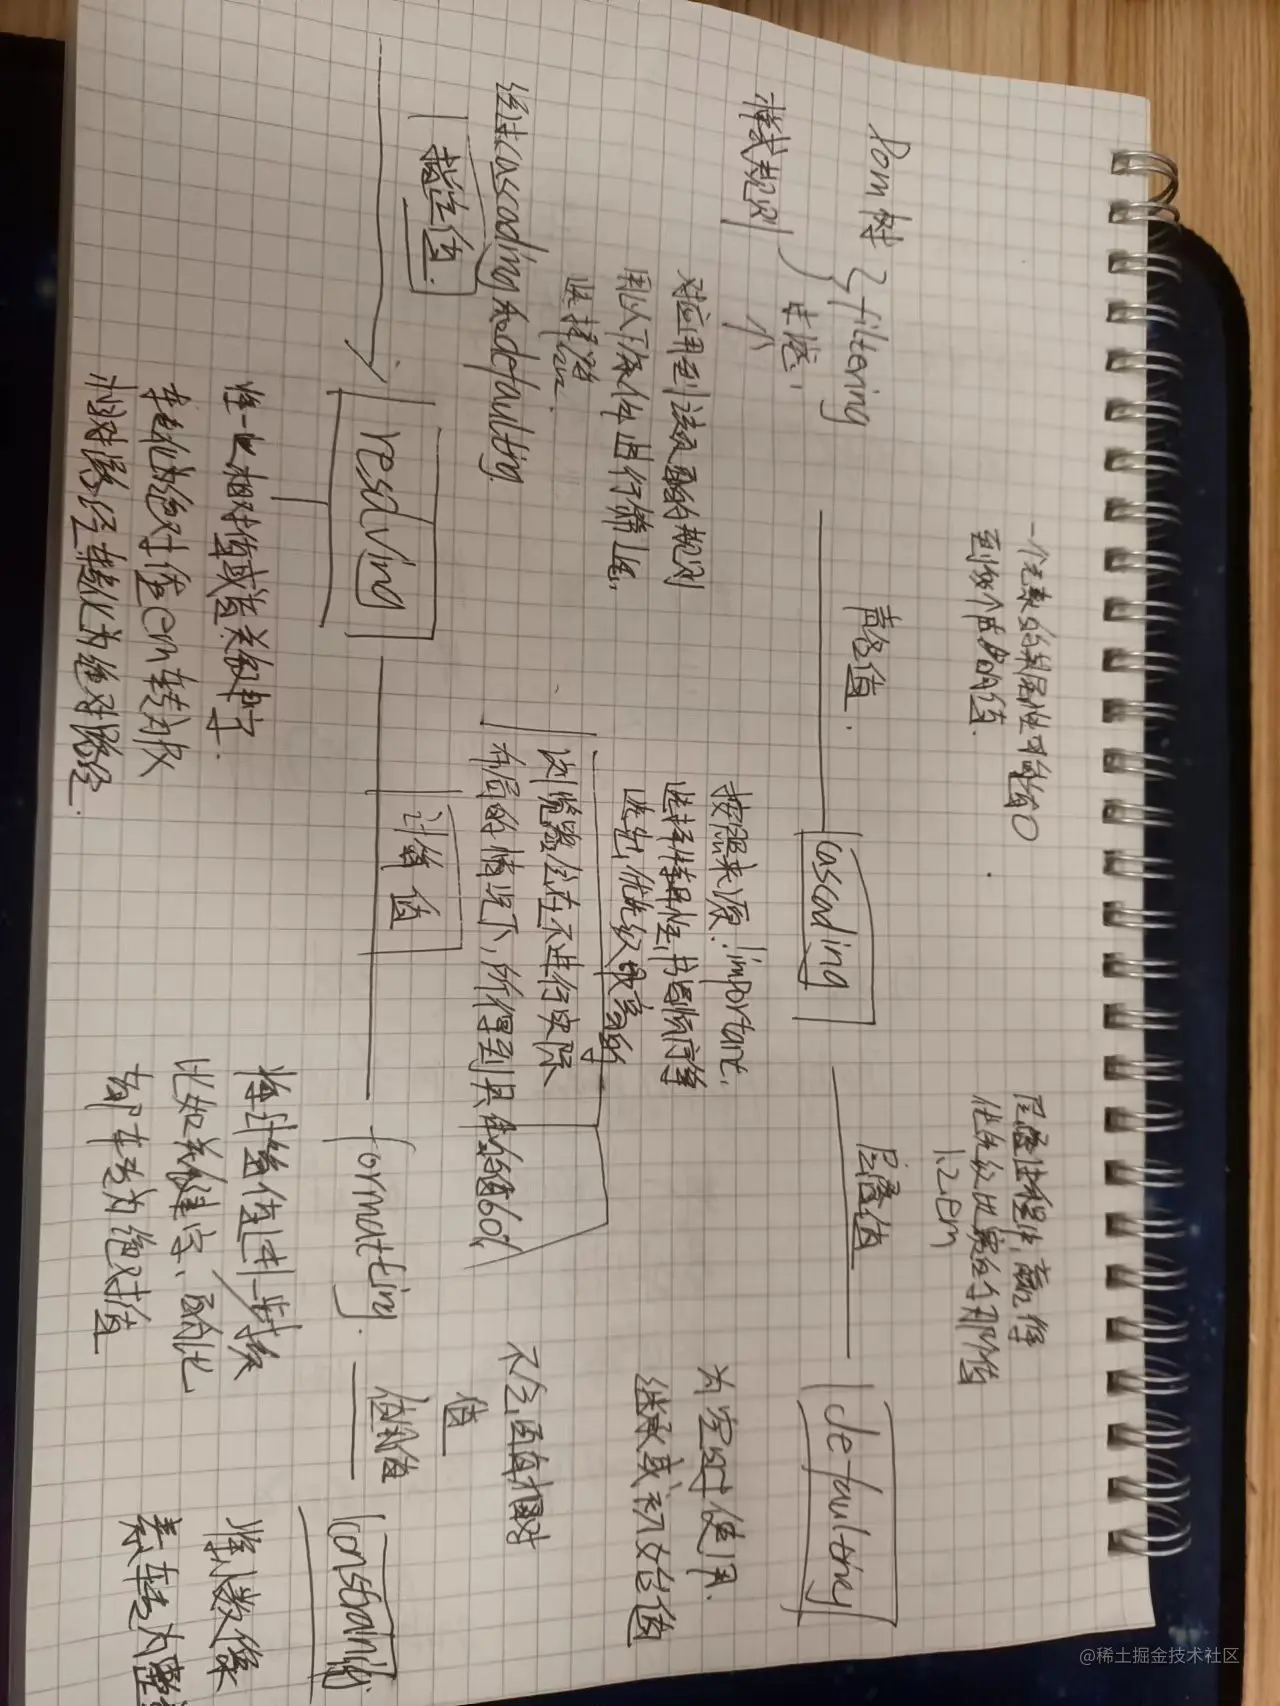 一个元素的某属性可能有0
到多个声明的值.
层叠过程中,赢得
优先级比赛的那个值
1.2em
Dom树
filtering
样式规则
声明值.
cascading
层叠值
defaulting
对应用到该页面的规则
用以下条件进行筛选,
选择器
按照来源. !important,
选择特异性,书写顺序等
选出优先级最高的
为空时使用.
继承或初始值
经过cascading和defaulting
浏览器会在不进行实际
布局的情况下,所得到具体的值60%
不会再有相对
值
指定值.
resolving
计算值
formatting.
使用值
constraining
将一些相对值或者关键字.
转化为绝对值em转为px
相对路径转化为绝对路径.
将计算值进一步转换
比如关键字、百分比
都转为绝对值
将小数像
素转为整
@稀土掘金技术社区